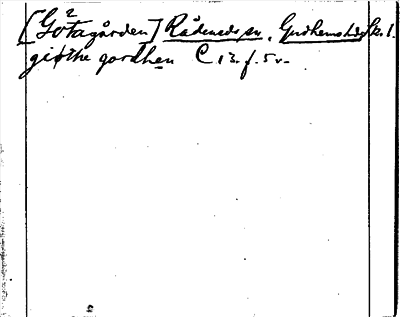 [Götagården] Rådenedsn, Gudhems hd, Sk. l.
giøthe gordhen C 13. f. 5 v.